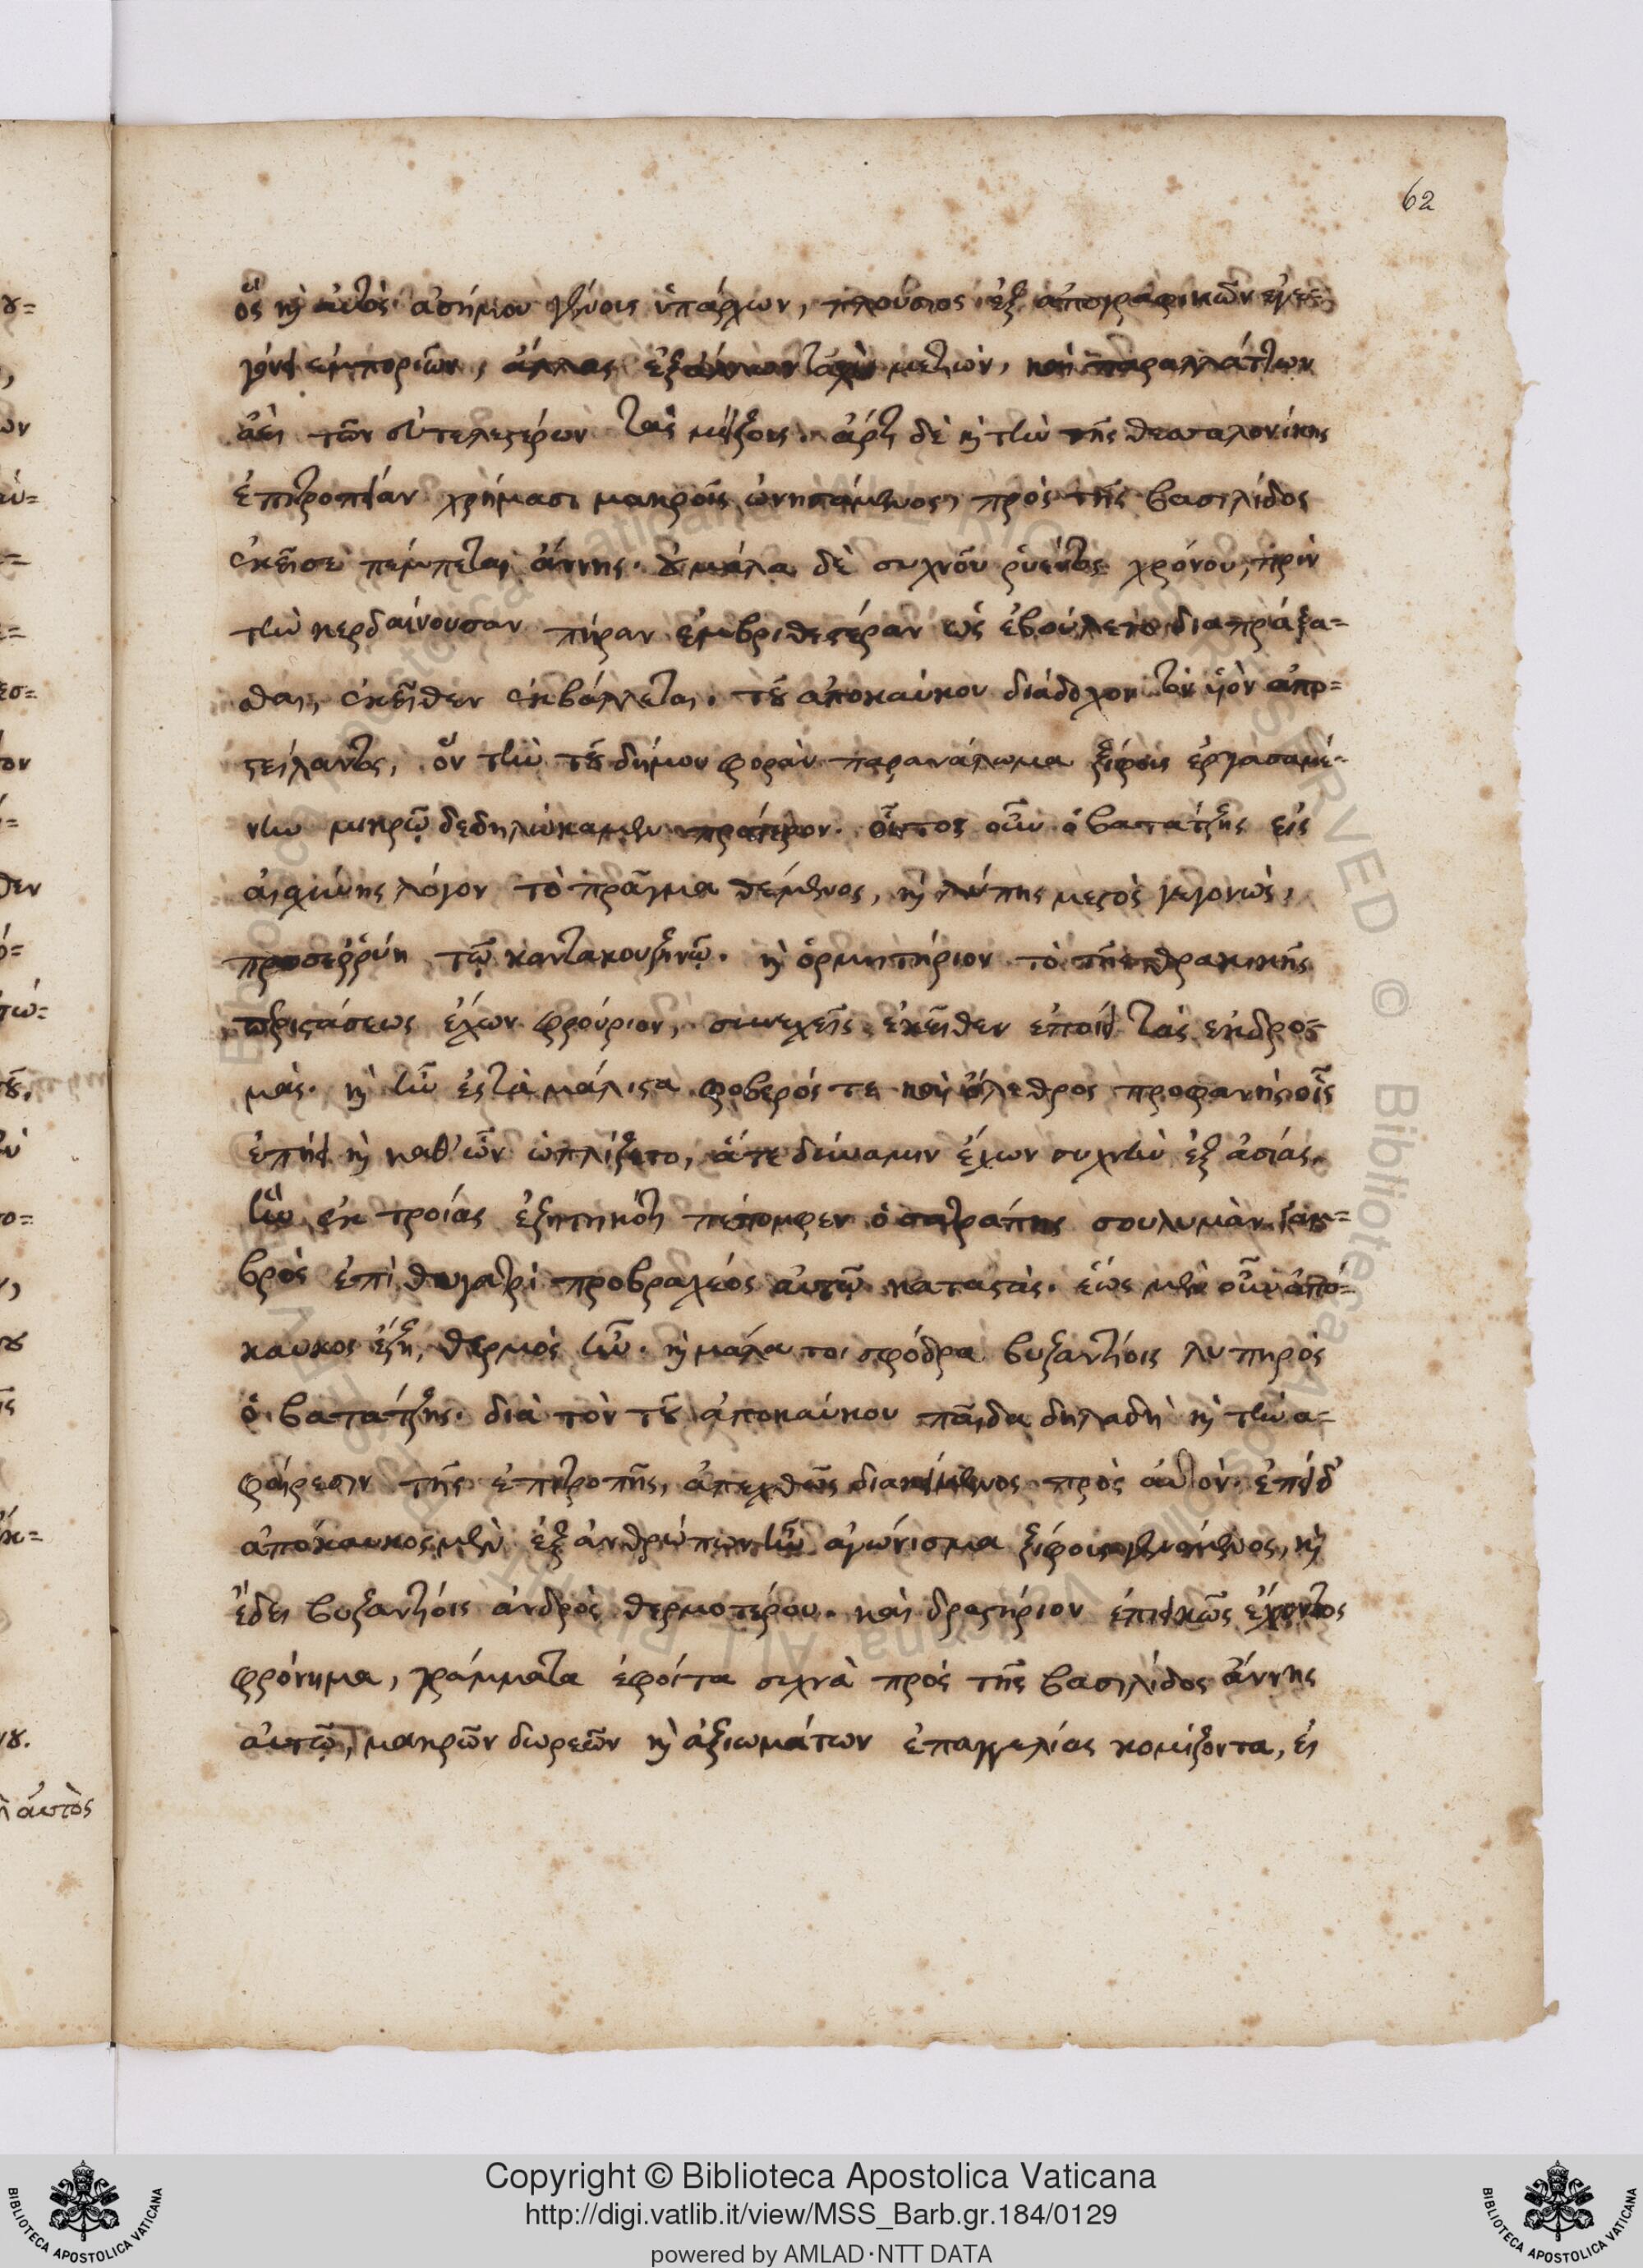 62
ὃς καὶ αὐτὸς ἀσήμου γένους ὑπάρχων, πλούσιος ἐξ ἀπογραφικῶν ἐγεγ
γόνει ἐμποριῶν, ἄλλας ἐξ ἄλλων μετιὼν, καὶ παραλλάττων
ἀεὶ τῶν εὐτελεστέρων τὰς μείζους. ἄρτι δὲ καὶ τὴν τῆς θεσσαλονίκης
ἐπιτροπείαν χρήμασι μακροῖς ὠνησάμενος, πρὸς τῆς βασιλίδος
ἐκεῖσε πέμπεται ἄννης. οὐ μάλα δὲ συχνοῦ ῥυέντος χρόνου, πρὶν
τὴν κερδαίνουσαν πήραν ἐμβριθεστέραν ὡς ἐβούλετο διαπράξα=
σθαι, ἐκεῖθεν ἐκβάλλεται. τοῦ ἀποκαύκου διάδοχον τὸν υἱὸν ἀπο=
στείλαντος, ὃν τὴν τοῦ δήμου φορὰν παρανάλωμα ξίφους ἐργασαμέ=
νην μικρῷ δεδηλώκαμεν πρότερον. οὗτος οὖν ὁ βατάτζης εἰς
αἰσχύνης λόγον τὸ πρᾶγμα θέμενος, καὶ λύπης μεστὸς γεγονὼς,
προσερρύη τῷ καντακουζηνῷ. καὶ ὁρμητήριον τὸ τῆς θρακικῆς
περιστάσεως ἔχων φρούριον, συνεχεῖς ἐκεῖθεν ἐποίει τὰς ἐκδρο=
μάς. καὶ ἦν ἐς τὰ μάλιστα φοβερός τε καὶ ὄλεθρος προφανὴς οἷς
ἐπῄει καὶ καθ' ὧν ὡπλίζετο, ἅτε δύναμιν ἔχων συχνὴν ἐξ ἀσίας.
ἣν ἐκ τροίας ἐξητηκότι πέπομφεν ὁ σατράπης σουλυμὰν γαμ=
βρὸς ἐπὶ θυγατρὶ προβραχέος αὐτῷ καταστάς. ἕως μὲν οὖν ἀπό=
καυκος ἔζη, θερμὸς ἦν. καὶ μάλα τοι σφόδρα βυζαντίοις λυπηρὸς
ὁ βατάτζης. διὰ τὸν τοῦ ἀποκαύκου παῖδα δηλαδὴ καὶ τὴν ἀ=
φαίρεσιν τῆς ἐπιτροπῆς, ἀπεχθῶς διακείμενος πρὸς αὐτόν. ἐπεὶ δ'
ἀπόκαυκος μὲν ἐξ ἀνθρώπων ἦν ἀγώνισμα ξίφους γενόμενος, καὶ
ἔδει βυζαντίοις ἀνδρὸς θερμοτέρου. καὶ δραστήριον ἐπιεικῶς ἔχοντος
φρόνημα, γράμματα ἐφοίτα συχνὰ πρὸς τῆς βασιλίδος ἄννης
αὐτῷ, μακρῶν δωρεῶν καὶ ἀξιωμάτων ἐπαγγελίας κομίζοντα, εἰ
αὐτὸς
Copyright © Biblioteca Apostolica Vaticana
http://digi.vatlib.it/view/MSS_Barb.gr.184/0129
powered by AMLAD·NTT DATA
BIBLIOTECA APOSTOLICA VATICANA
BIBLIOTECA APOSTOLICA VATICANA